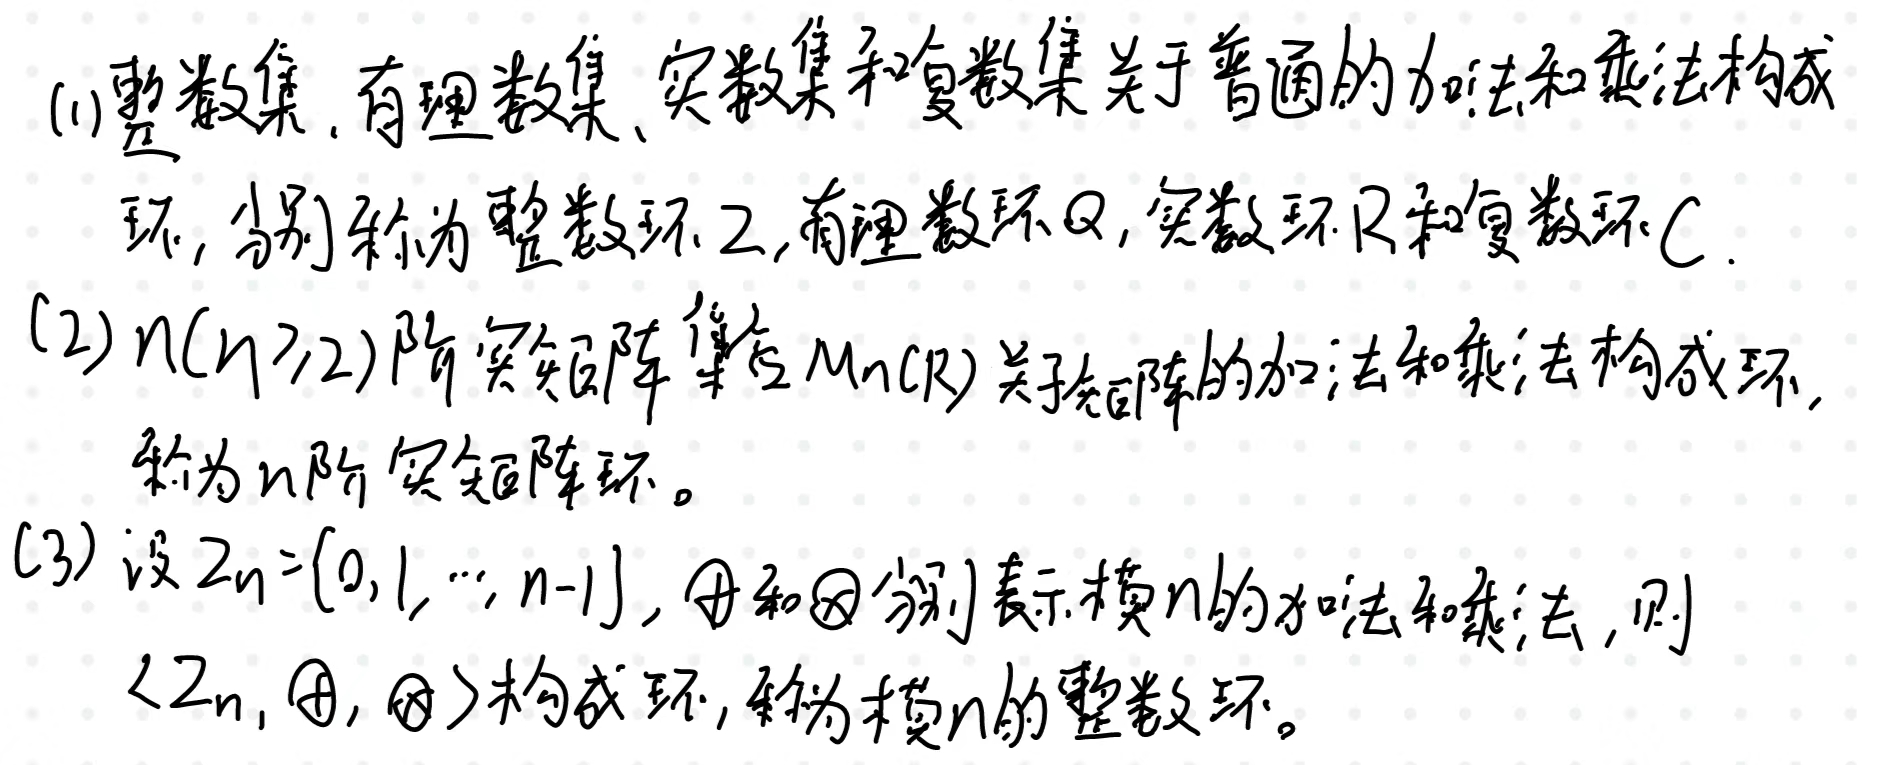 (1)整数集、有理数集、实数集和复数集关于普通的加法和乘法构成
环,分别称为整数环Z,有理数环Q,实数环R和复数环C.
(2)n(n≥2)阶实矩阵集合Mn(R)关于矩阵的加法和乘法构成环,
称为n阶实矩阵环。
(3)设Zn={0,1,…,n-1},⊕和⊗分别表示模n的加法和乘法,则
<Zn,⊕,⊗>构成环,称为模n的整数环。